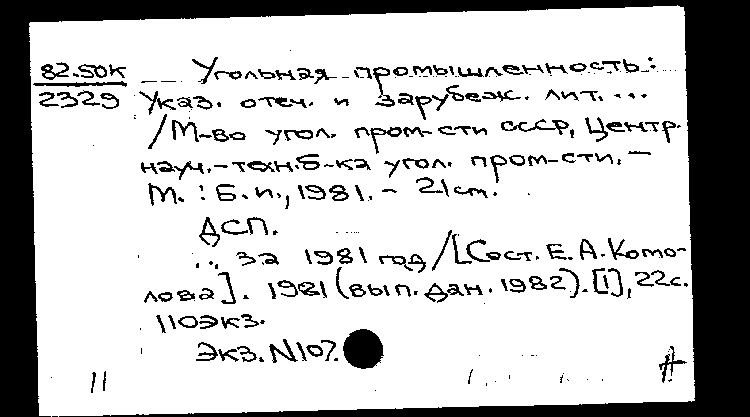 82.50К
2329
Угольная промышленность:
Указ. отеч. и зарубеж. лит. ...
/М-во угол. пром-сти СССР, Центр.
науч.-техн. б-ка угол. пром-сти. –
М. : Б. и., 1981. – 21 см.
ДСП.
... за 1981 год / [Сост. Е. А. Комо-
лова]. 1981 (вып. дан. 1982). [1], 22 с.
110 экз.
Экз. N107.
11
А